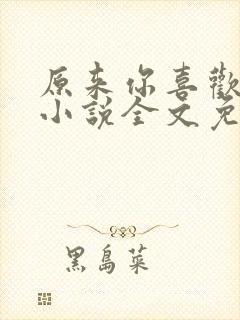 原来你喜歡
小說全文免
黑島菜